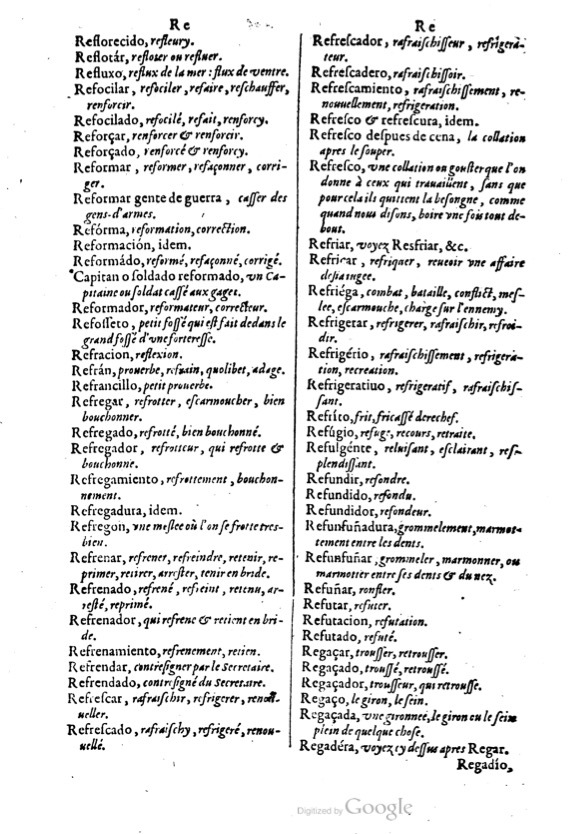 Re
Re
Reflorecido, refleury.
Reflotár, refloter ou refluer.
Refluxo, reflux de la mer : flux de ventre.
Refocilar, refociler, refaire, reſchauffer,
renforcir.
Refocilado, refocilé, refait, renforcy.
Reforçar, renforcer & renforcir.
Reforçado, renforcé & renforcy.
Reformar, reformer, refaçonner, corri-
ger.
Reformar gente de guerra, caſſer des
gens-d'armes.
Refórma, reformation, correction.
Reformación, idem.
Reformádo, reformé, refaçonné, corrigé.
Capitan o soldado reformado, vn Ca-
pitaine ou soldat caſſé aux gages.
Reformador, reformateur, correcteur.
Refoſſeto, petit foſſé qui eſt fait dedans le
grand foſſé d'vne fortereſſe.
Refracion, reflexion.
Refrán, prouerbe, refrain, quolibet, adage.
Refrancillo, petit prouerbe.
Refregar, refrotter, eſcarmoucher, bien
bouchonner.
Refregado, refrotté, bien bouchonné.
Refregador, refrotteur, qui refrotte &
bouchonne.
Refregamiento, refrottement, bouchon-
nement.
Refregadura, idem.
Refregon, vne meſlee où l'on ſe frotte tres-
bien.
Refrenar, refrener, refreindre, retenir, re-
primer, retirer, arreſter, tenir en bride.
Refrenado, refrené, refreint, retenu, ar-
reſté, reprimé.
Refrenador, qui refrene & retient en bri-
de.
Refrenamiento, refrenement, retien.
Refrendar, contreſigner par le Secretaire.
Refrendado, contreſigné du Secretaire.
Refreſcar, rafraiſchir, refrigerer, renou-
ueller.
Refreſcado, rafraiſchy, refrigeré, renou-
uellé.
Refreſcador, rafraiſchiſſeur, refrigera-
teur.
Refreſcadero, rafraiſchiſſoir.
Refreſcamiento, rafraiſchiſſement, re-
nouuellement, refrigeration.
Refreſco & refreſcura, idem.
Refreſco deſpues de cena, la collation
apres le ſouper.
Refreſco, vne collation ou gouſter que l'on
donne à ceux qui trauaillent, ſans que
pour cela ils quittent la beſongne, comme
quand nous diſons, boire vne fois tout de-
bout.
Refriar, voyez Resfriar, &c.
Refricar, refriquer, reueoir vne affaire
desia iugee.
Refriéga, combat, bataille, conflict, meſ-
lee, eſcarmouche, charge ſur l'ennemy.
Refrigerar, refrigerer, rafraiſchir, refroi-
dir.
Refrigério, rafraiſchiſſement, refrigera-
tion, recreation.
Refrigeratiuo, refrigeratif, rafraiſchiſ-
ſant.
Refríto, frit, fricaſſé derechef.
Refúgio, refuge, recours, retraite.
Refulgénte, reluiſant, eſclairant, reſ-
plendiſſant.
Refundir, refondre.
Refundido, refondu.
Refundidor, refondeur.
Refunfuñadura, grommelement, marmot-
tement entre les dents.
Refunfuñar, grommeler, marmonner, ou
marmotter entre ſes dents & du nez.
Refuñar, ronfler.
Refutar, refuter.
Refutacion, refutation.
Refutado, refuté.
Regaçar, trouſſer, retrouſſer.
Regaçado, trouſſé, retrouſſé.
Regaçador, trouſſeur, qui retrouſſe.
Regaço, le giron, le ſein.
Regaçada, vne gironnee, le giron ou le ſein
plein de quelque choſe.
Regadéra, voyez cy deſſus apres Regar.
Regadío,
Digitized by Google